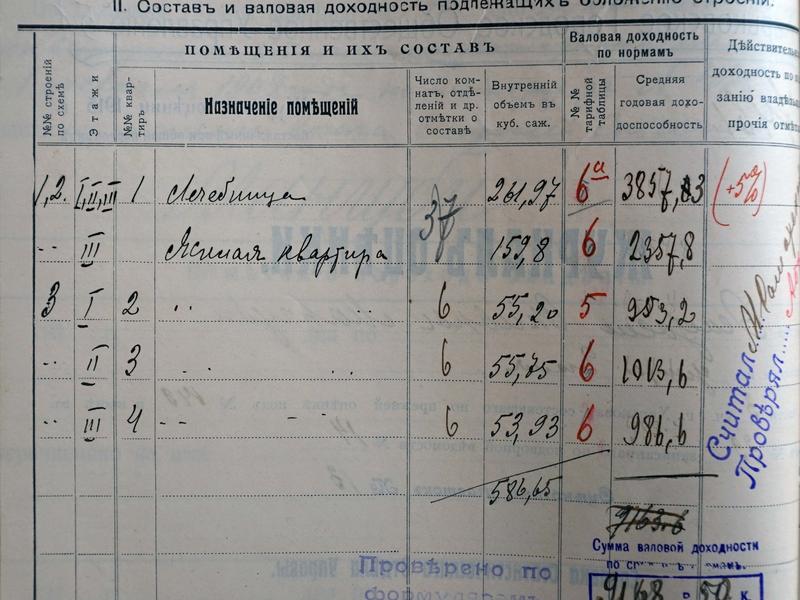 II. Составъ и валовая доходность подлежащихъ обложенію строеній.
ПОМѢЩЕНІЯ И ИХЪ СОСТАВЪ
Валовая доходность по нормамъ
№№ строеній по схемѣ
Этажи
№№ квартиръ
Назначеніе помѣщеній
Число комнатъ, отдѣленій и др. отмѣтки о составѣ
Внутренній объемъ въ куб. саж.
№№ тарифной таблицы
Средняя годовая доходоспособность
доходность по
занію владѣль
прочія отмѣт
1,2. I,II,III 1 Лечебница 37 261,97 6а 3857,83 (+5%)
-"- III Жилая квартира 159,8 6 2357,8
3 I 2 " " 6 55,20 5 953,2
" II 3 " " 6 55,75 6 1013,6
" III 4 " " 6 53,93 6 986,6
586,65
9163.6
Считалъ
Провѣрял....
Сумма валовой доходности
Провѣрено по
9168 р 50 к.